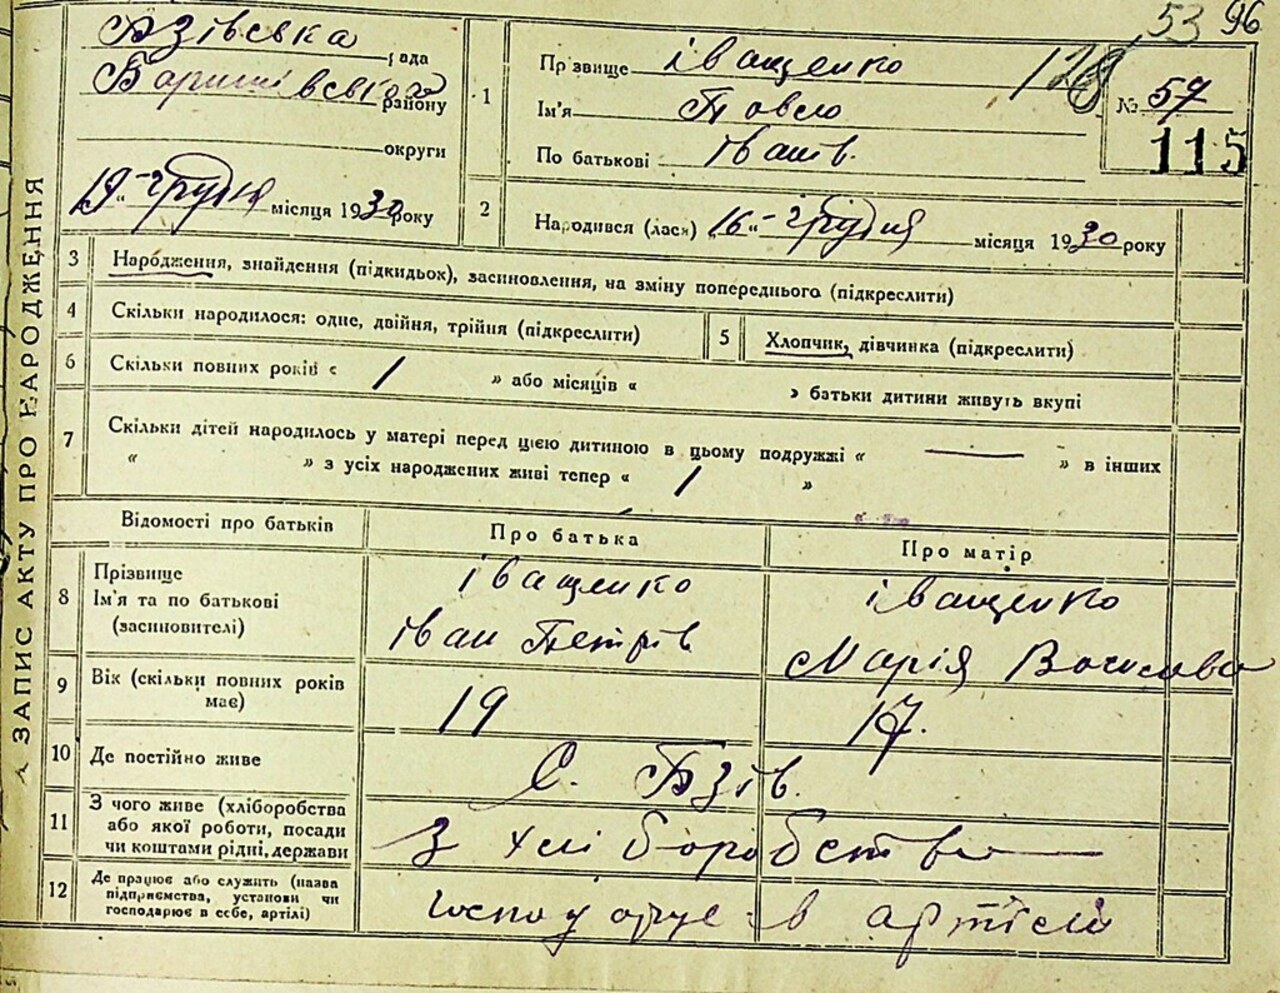 53 96
Бзівська рада
Баришівського району
округи
19 "грудня місяця 1930 року
1
Прізвище Іващенко
Ім'я Павло
По батькові Іванів.
128
№ 57
115
2
Народився (лася) „16" грудня місяця 1930 року
ЗАПИС АКТУ ПРО НАРОДЖЕННЯ
3 Народження, знайдення (підкидьох), засиновлення, на зміну попереднього (підкреслити)
4 Скільки народилося: одне, двійня, трійня (підкреслити)
5 Хлопчик, дівчинка (підкреслити)
6 Скільки повних років « 1 » або місяців « » батьки дитини живуть вкупі
7 Скільки дітей народилось у матері перед цією дитиною в цьому подружжі « — » в інших
« » з усіх народжених живі тепер « 1 »
Відомості про батьків
Про батька
Про матір
8 Прізвище
Ім'я та по батькові
(засиновителі)
Іващенко
Іван Петрів
Іващенко
Марія
9 Вік (скільки повних років
має)
19
17.
10 Де постійно живе
С. Бзів.
11 З чого живе (хліборобства
або якої роботи, посади
чи коштами рідні, держави
З хліборобства
12 Де працює або служить (назва
підприємства, установи чи
господарює в себе, артілі)
господарує в артілі